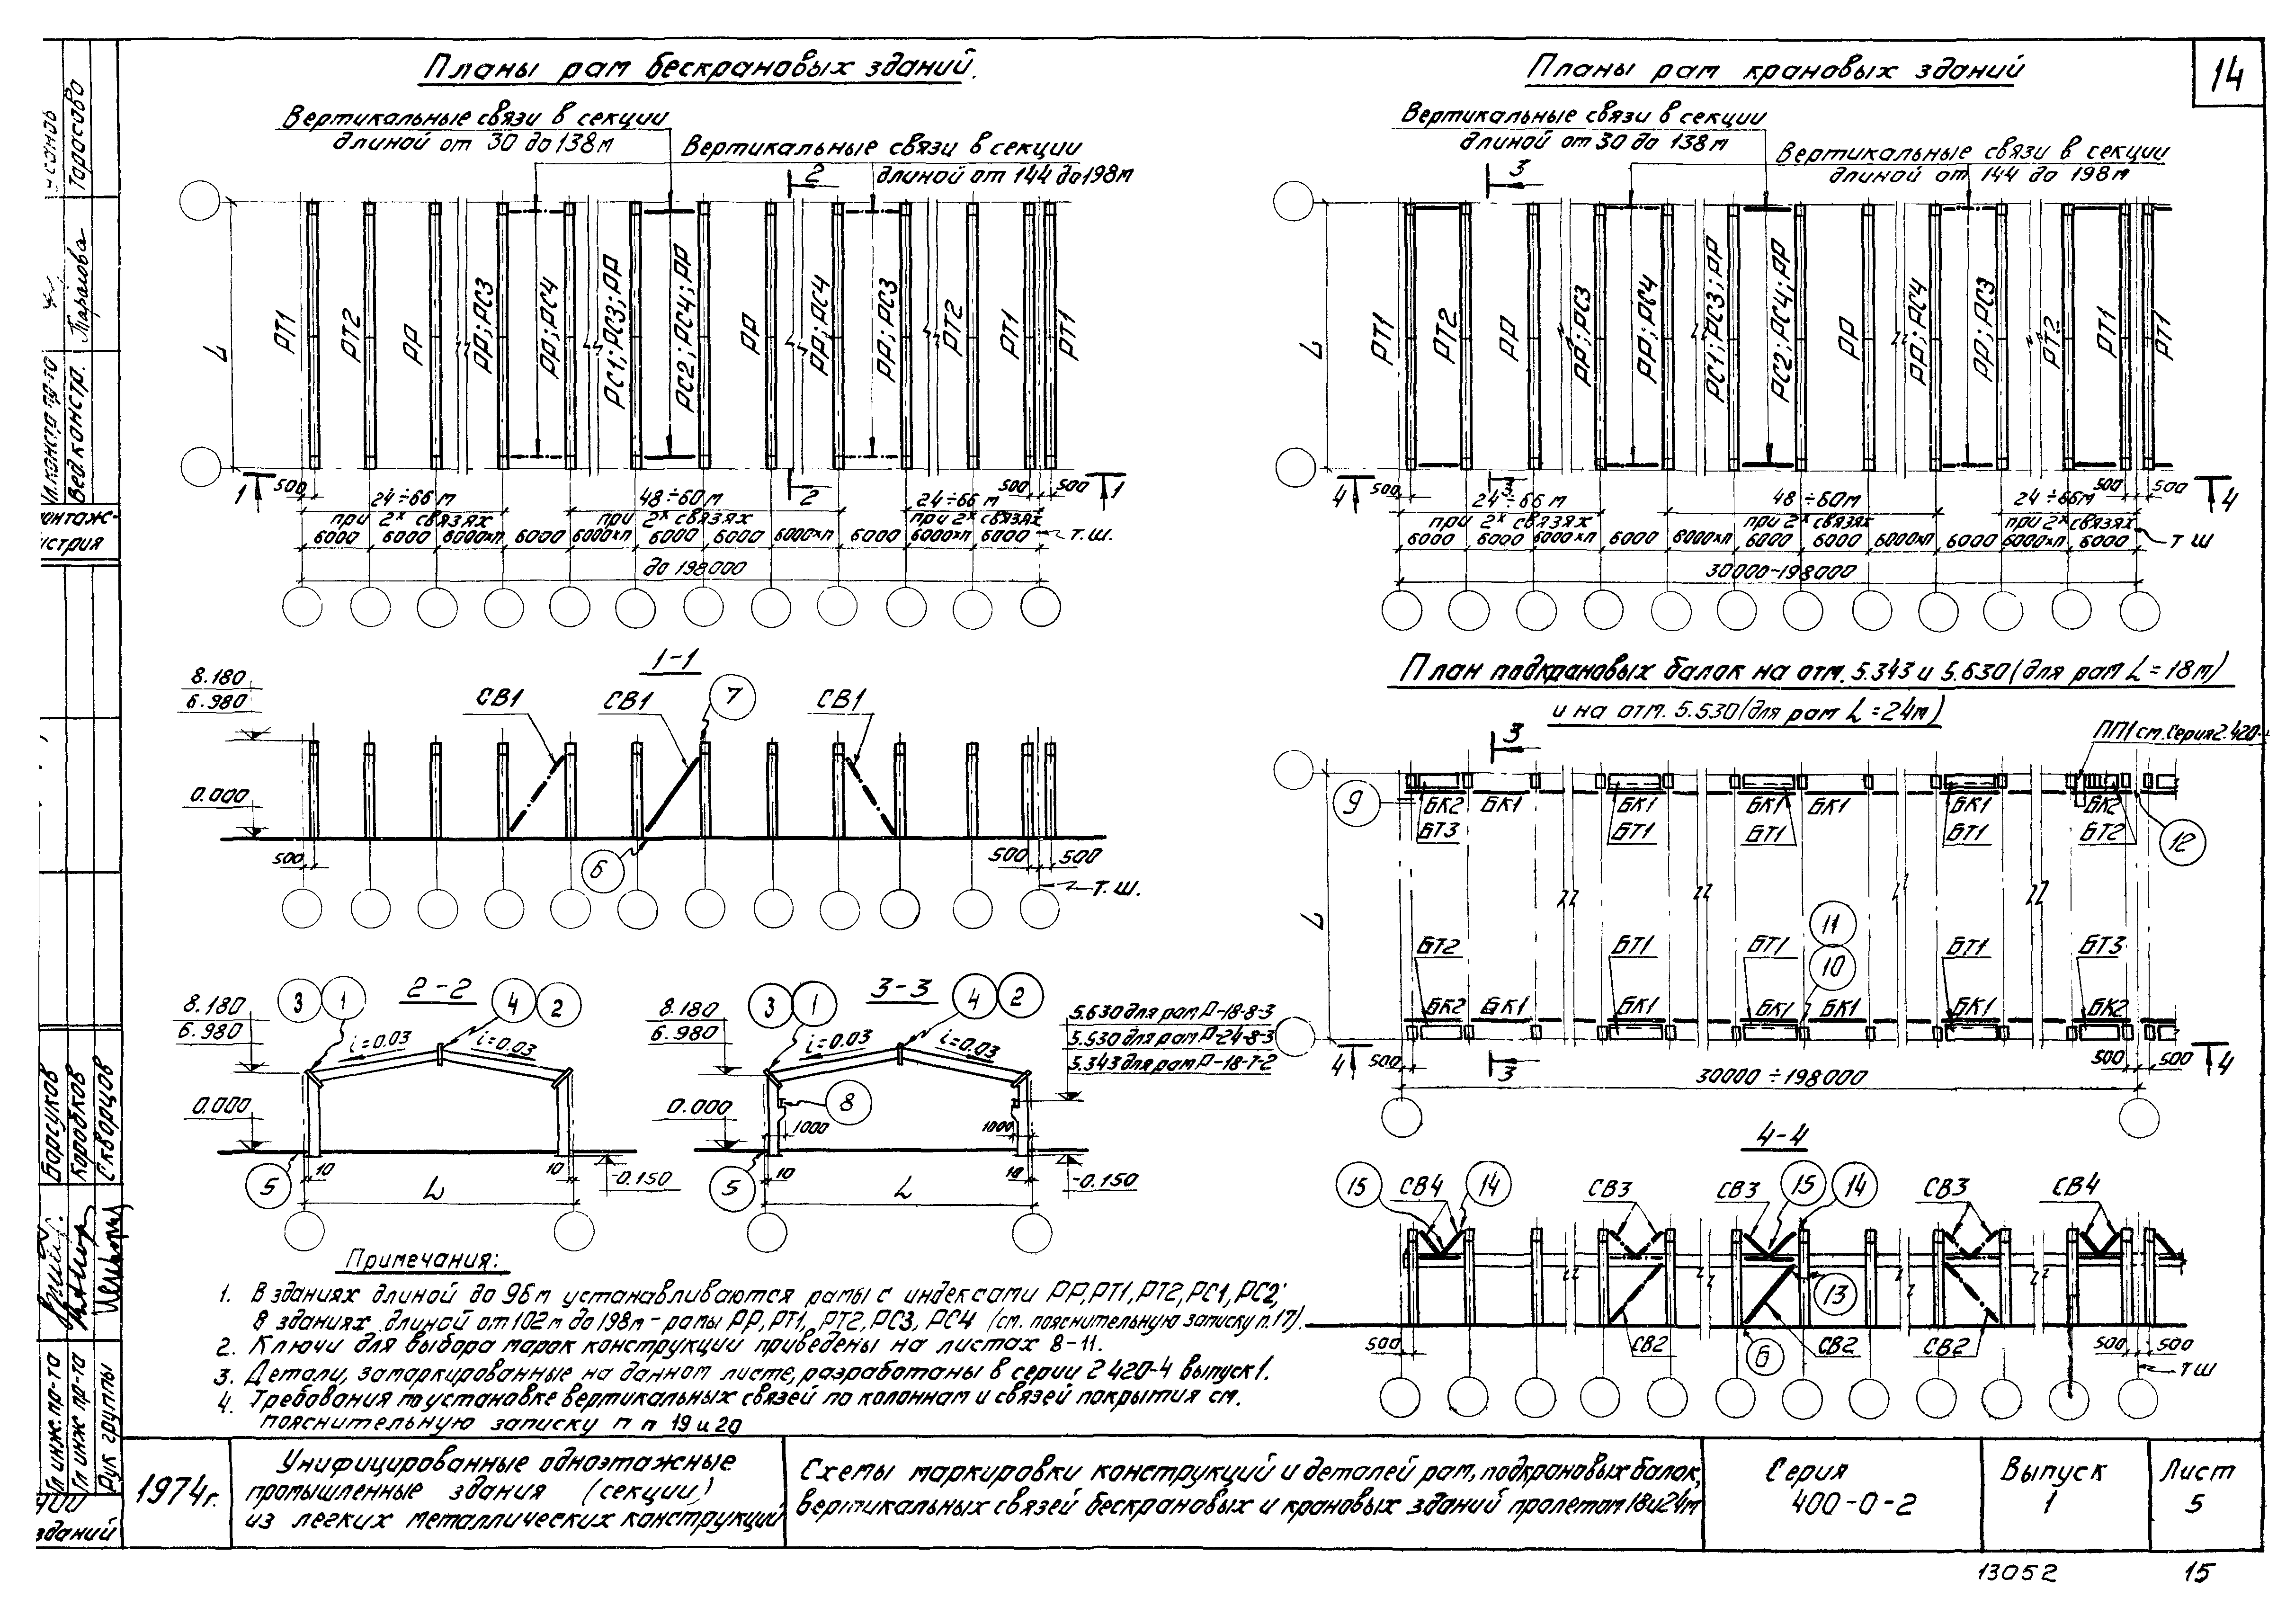 14
Планы рам бескрановых зданий.
Вертикальные связи в секции
длиной от 30 до 138м
Вертикальные связи в секции
длиной от 144 до 198м
2
L
РТ1
РТ2
РР
РР; РС3
РР; РС4
РС1; РС3; РР
РС2; РС4; РР
РР
РР; РС4
РР; РС3
РТ2
РТ1
РТ1
1
500
24÷66 м
48÷60м
2
24÷66 м
500
500
1
при 2х связях
при 2х связях
при 2х связях
6000
6000
6000хп
6000
6000хп
6000
6000
6000хп
6000
6000хп
6000
Т.Ш.
до 198000
Планы рам крановых зданий
Вертикальные связи в секции
длиной от 30 до 138м
Вертикальные связи в секции
длиной от 144 до 198м
3
L
РТ1
РТ2
РР
РР; РС3
РР; РС4
РС1; РС3; РР
РС2; РС4; РР
РР
РР; РС4
РР; РС3
РТ2
РТ1
РТ1
4
500
3
24÷66 м
48÷60м
24÷66м
500
500
4
при 2х связях
при 2х связях
при 2х связях
6000
6000
6000хп
6000
6000хп
6000
6000
6000хп
6000
6000хп
6000
Т Ш
30000-198000
1-1
8.180
6.980
0.000
СВ1
СВ1
7
СВ1
500
6
500
500
Т.Ш.
План подкрановых балок на отм. 5.343 и 5.630 (для рам L=18м)
и на отм. 5.530 (для рам L=24м)
3
ПП1 см. Серия 2.420-4
9
БК2
БК1
БК1
БК1
БК1
БК1
БК2
БТ3
БТ1
БТ1
БТ1
БТ2
12
L
11
10
БТ2
БТ1
БТ1
БТ1
БТ3
БК2
БК1
БК1
БК1
БК1
БК1
БК2
4
500
3
500
500
4
30000 ÷ 198000
2-2
3
1
4
2
8.180
6.980
i=0.03
i=0.03
0.000
5
10
10
-0.150
L
3-3
3
1
4
2
8.180
6.980
i=0.03
i=0.03
5.630 для рам Р-18-8-3
5.530 для рам Р-24-8-3
5.343 для рам Р-18-7-2
8
0.000
1000
1000
5
10
10
-0.150
L
4-4
15
СВ4
14
СВ3
СВ3
15
14
СВ3
СВ4
13
500
СВ2
6
СВ2
СВ2
500
500
Т Ш
Примечания:
1. В зданиях длиной до 96м устанавливаются рамы с индексами РР, РТ1, РТ2, РС1, РС2;
в зданиях длиной от 102м до 198м - рамы РР, РТ1, РТ2, РС3, РС4 (см. пояснительную записку п.17).
2. Ключи для выбора марок конструкции приведены на листах 8-11.
3. Детали, замаркированные на данном листе, разработаны в серии 2 420-4 выпуск 1.
4. Требования по установке вертикальных связей по колоннам и связей покрытия см.
пояснительную записку п п 19 и 20
1974г.
Унифицированные одноэтажные
промышленные здания (секции)
из легких металлических конструкций
Схемы маркировки конструкций и деталей рам, подкрановых балок,
вертикальных связей бескрановых и крановых зданий пролетом 18 и 24м
Серия
400-0-2
Выпуск
1
Лист
5
13052
15
Тарасова
Вед констр.
Барсуков
Коробков
Скворцов
Гл инж. пр-та
Гл инж пр-та
Рук группы
зданий